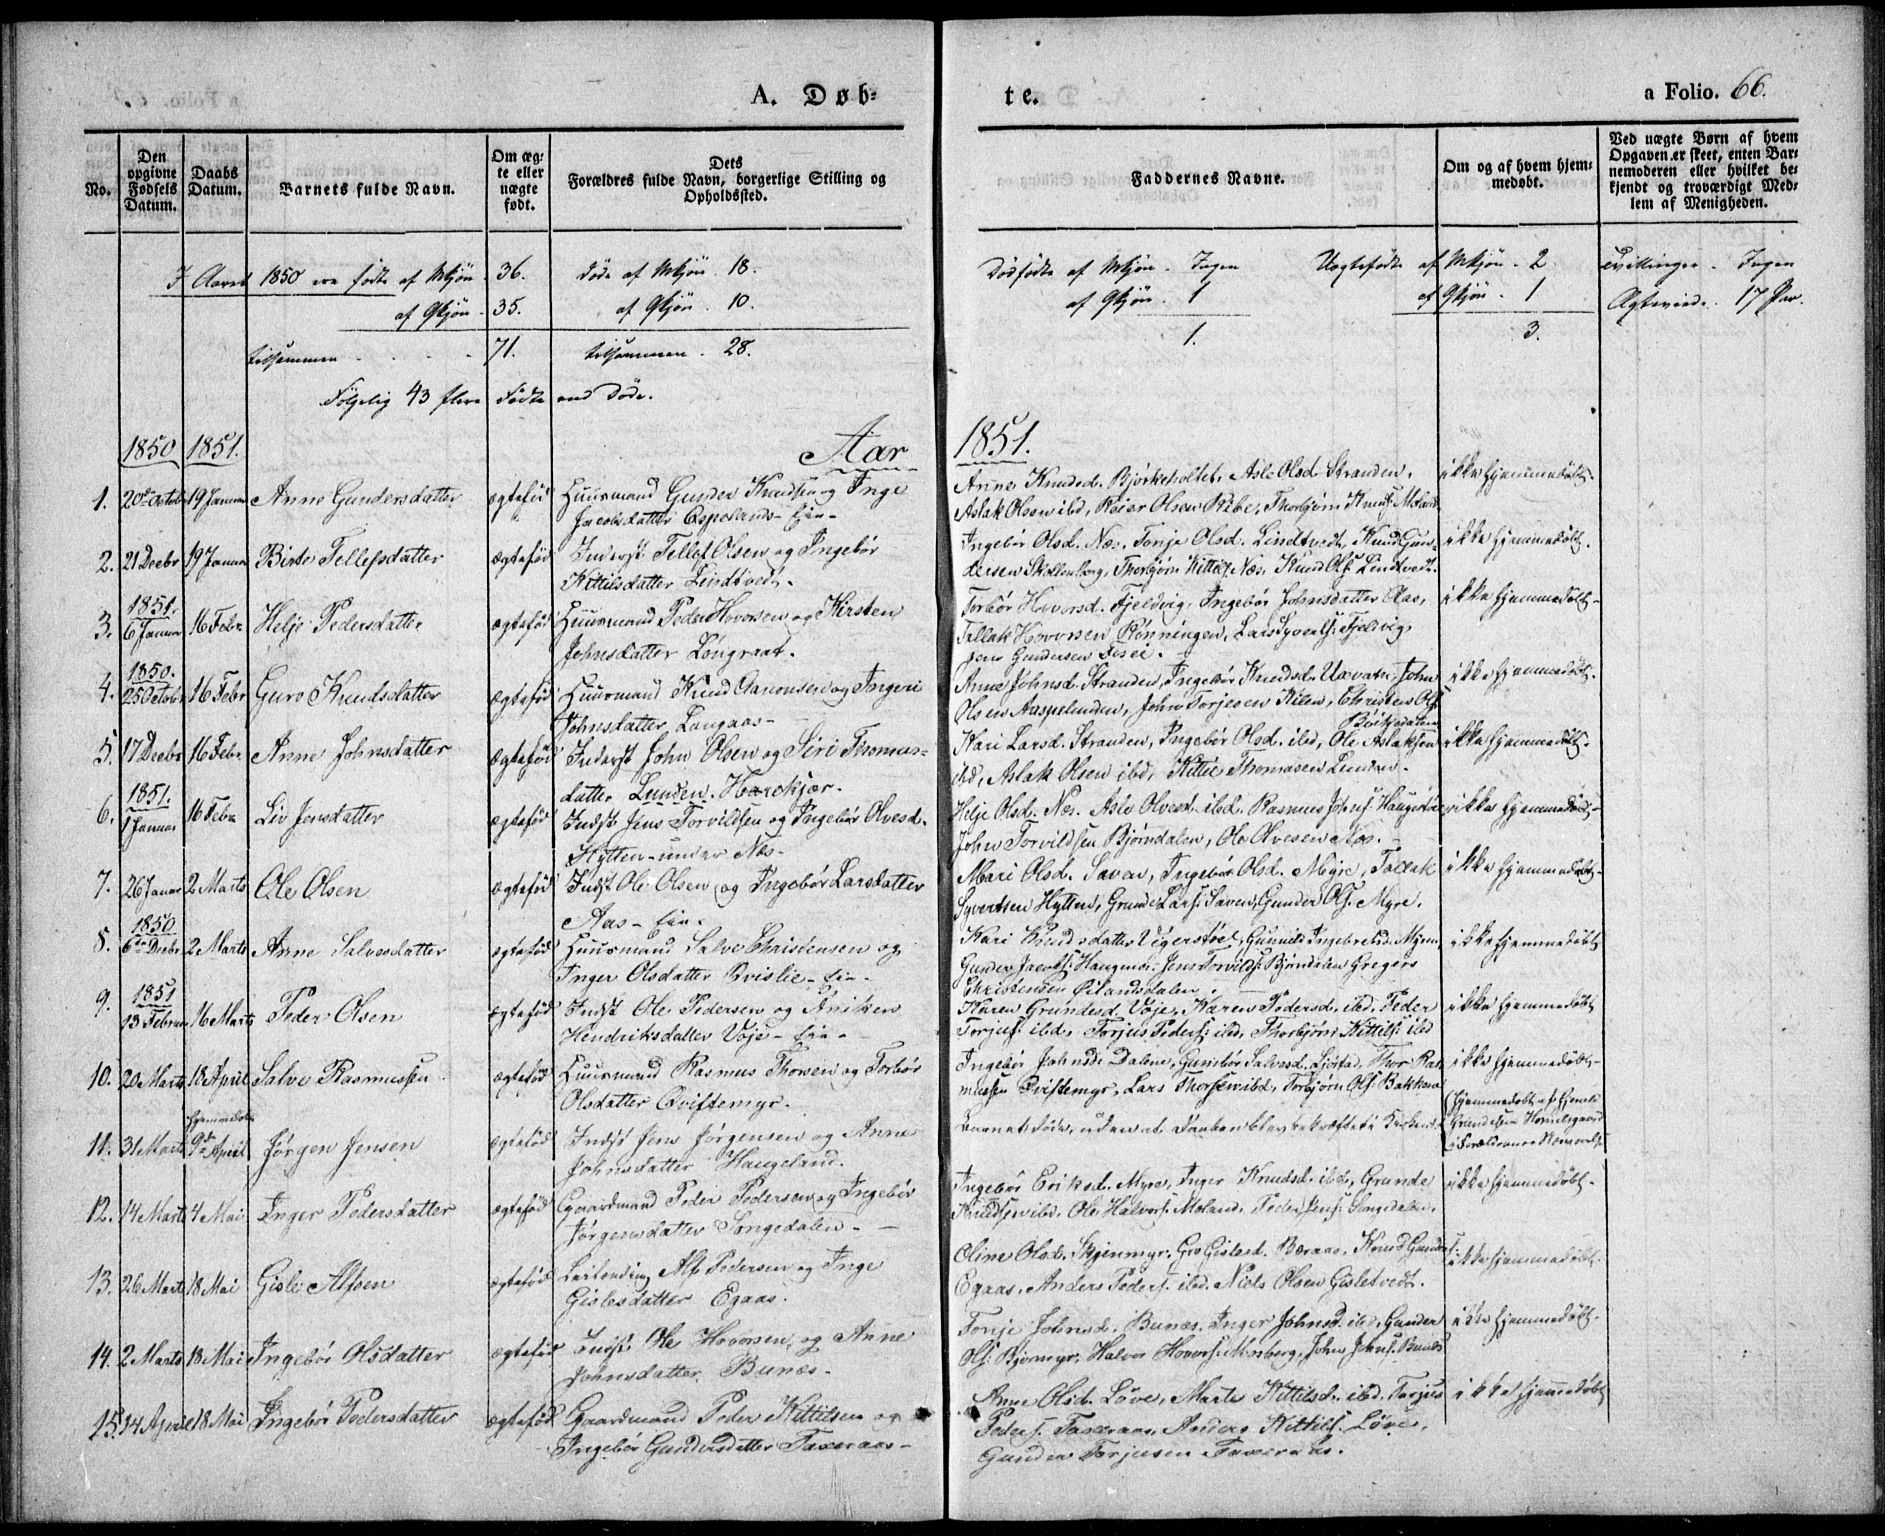 A. Døb-
te.
a Folio. 66.
No.
Den opgivne Fødsels Datum.
Daabs Datum.
Barnets fulde Navn.
Om ægte eller uægte født.
Dets Forældres fulde Navn, borgerlige Stilling og Opholdssted.
Faddernes Navne.
Om og af hvem hjemmedøbt.
Ved uægte Børn af hvem Opgaven er skeet, enten Barnemoderen eller hvilket bekjendt og troværdigt Medlem af Menigheden.
I Aaret 1850 ere fødte af Mkjøn 36. døde af Mkjøn 18. Dødfødte af Mkjøn. Ingen Uægtefødte af Mkjøn. 2 Tvillinger. Ingen
af Qkjøn 35. af Qkjøn. 10. af Qkjøn. 1 af Qkjøn. 1 Ægteviede. 17 Par.
tilsammen 71. tilsammen. 28. 1. 3.
Følgelig 43 flere fødte end døde.
1850 1851. Aar 1851.
1. 20de October 19 Januar Anne Gundersdatter ægtefød Huusmand Gunder Knudsen og Inge
Jacobsdatter Espelands-Eie-
Anne Knudsd. Bjørkeholtet, Asle Olsd. Stranden,
Aslak Olsen ibd, Reier Olsen Ribe, Thorbjørn Knuds. Moland
ikke hjemmedøbt.
2. 21 Decbr 19 Januar Birte Tellefsdatter ægtefød Inderst Tellef Olsen og Ingebør
Kittilsdatter Lindtvedt.
Ingebør Olsd. Næs, Tonje Olsd. Lindtvedt, Knud Gun-
dersen Skollenborg, Thorbjørn Kittels. Næs, Knud Ols. Lindtvedt.
ikke hjemmedøbt.
1851.
3. 6 Januar 16 Febr Helje Pedersdatter ægtefød Huusmand Peder Hovorsen og Kirsten
Johnsdatter Longraat.
Torbør Hovorsd. Fjeldvig, Ingebør Johnsdatter Aas,
Tallak Hovorsen Rønningen, Lars Syverts. Fjeldvig,
Jens Gundersen
ikke hjemmedøbt-
1850.
4. 25 October 16 Febr Guro Knudsdatter ægtefød Huusmand Knud Aanonsen og Ingeri
Johnsdatter Langaas-
Anne Johnsd. Stranden, Ingebør Knudsd. Uxvatn, John
Olsen Aaspelunden, John Torjesen Kilen, Christen Ols.
ikke hjemmedøbt.
5. 17 Decbr 16 Febr Anne Johnsdatter ægtefød Inderst John Olsen og Siri Thomas-
datter Lunden. Harekjær.
Kari Larsd. Stranden, Ingebør Olsd. ibd, Ole Aslaksen
ibd, Aslak Olsen ibd, Kittil Thomasen Lunden.
ikke hjemmedøbt.
1851.
6. 1 Januar 16 Febr Liv Jensdatter ægtefød Indst Jens Torvildsen og Ingebør Olvesd.
Hytten-under Næs-
Helje Olsd. Næs, Aslø Olvesd. ibd. Rasmus
John Torvildsen Bjørndalen, Ole Olvesen Næs.
ikke hjemmedøbt-
7. 26 Januar 2 Marts Ole Olsen ægtefød Indst Ole Olsen og Ingebør Larsdatter
Aas-Eie.
Mari Olsd. Saven, Ingebør Olsd. Myre, Tallak
Syvertsen Hytten, Grunde Lars. Saven, Gunder Ols. Myre.
ikke hjemmedøbt-
1850
8. 6te Decbr 2 Marts Anne Salvesdatter ægtefød Huusmand Salve Christensen og
Inger Olsdatter Qvislie-Eie-
Kari Knudsdatter Vegerstøel, Gunnild Ingebretsd. Myren
Gunder Jacobs. Haugene. Jens Torvilds. Bjørndalen Gregers
Christensen Øilandsdalen.
ikke hjemmedøbt
1851
9. 13 Februar 16 Marts Peder Olsen ægtefød Indst Ole Pedersen og Aniken
Hendriksdatter Voje-Eie-
Karen Grundesd. Voje, Karen Pedersd. ibd, Peder
Torjus. ibd, Torjus Peders. ibd, Thorbjørn Kittils. ibd
ikke hjemmedøbt
10. 20 Marts 18 April Salve Rasmussen ægtefød Huusmand Rasmus Thorsen og Torbør
Olsdatter Qviftemyr.
Ingebør Johnsd. Dalene, Gunbør Salvesd. Liøstad, Thor Ras-
mussen Qviftemyr, Lars Thorsen ibd, Torbjørn Ols. Bakken
ikke hjemmedøbt-
11. 31 Marts hjemmedøbt 9de April Jørgen Jensen ægtefød Indst Jens Jørgensen og Anne
Johnsdatter Haugeland.
Barnet døde, uden at Daaben blev bekræftet i Kirken
hjemmedøbt af
Grundesen
i Forældrenes
12. 14 Marts 4 Mai Inger Pedersdatter ægtefød Gaardmand Peder Pedersen og Ingebør
Jørgensdatter Songedalen-
Ingebør Eriksd. Myre, Inger Knudsd. ibd, Grunde
Knudsen ibd, Ole Halvors. Moland, Peder Jens. Songedalen.
ikke hjemmedøbt-
13. 26 Marts 18 Mai Gisle Alfsen ægtefød Leilending Alf Pedersen og Inge
Gislesdatter Egaas.
Oline Olsd. Skjenmyr, Gro Gislesd. Beraas, Knud Gunders.
Egaas, Anders Peders. ibd. Niels Olsen Gisletvedt.
ikke hjemmedøbt.
14. 2 Marts 18 Mai Ingebør Olsdatter ægtefød Indst Ole Hovorsen og Anne
Johnsdatter Bunes.
Tonje Johnsd. Bunes, Inger Johnsd. ibd, Gunder
Ols. Bjørmyr, Halvor Hovors. Mosberg, John Johns. Bunes
ikke hjemmedøbt-
15. 14 April 18 Mai Ingebør Pedersdatter ægtefød Gaardmand Peder Kittilsen og
Ingebør Gundersdatter Taxeraas-
Anne Olsd. Løve, Marte Kittilsd. ibd. Torjus
Peders. Taxeraas, Anders Kittils. Løve,
Gunder Torjusen Taxeraas.
ikke hjemmedøbt